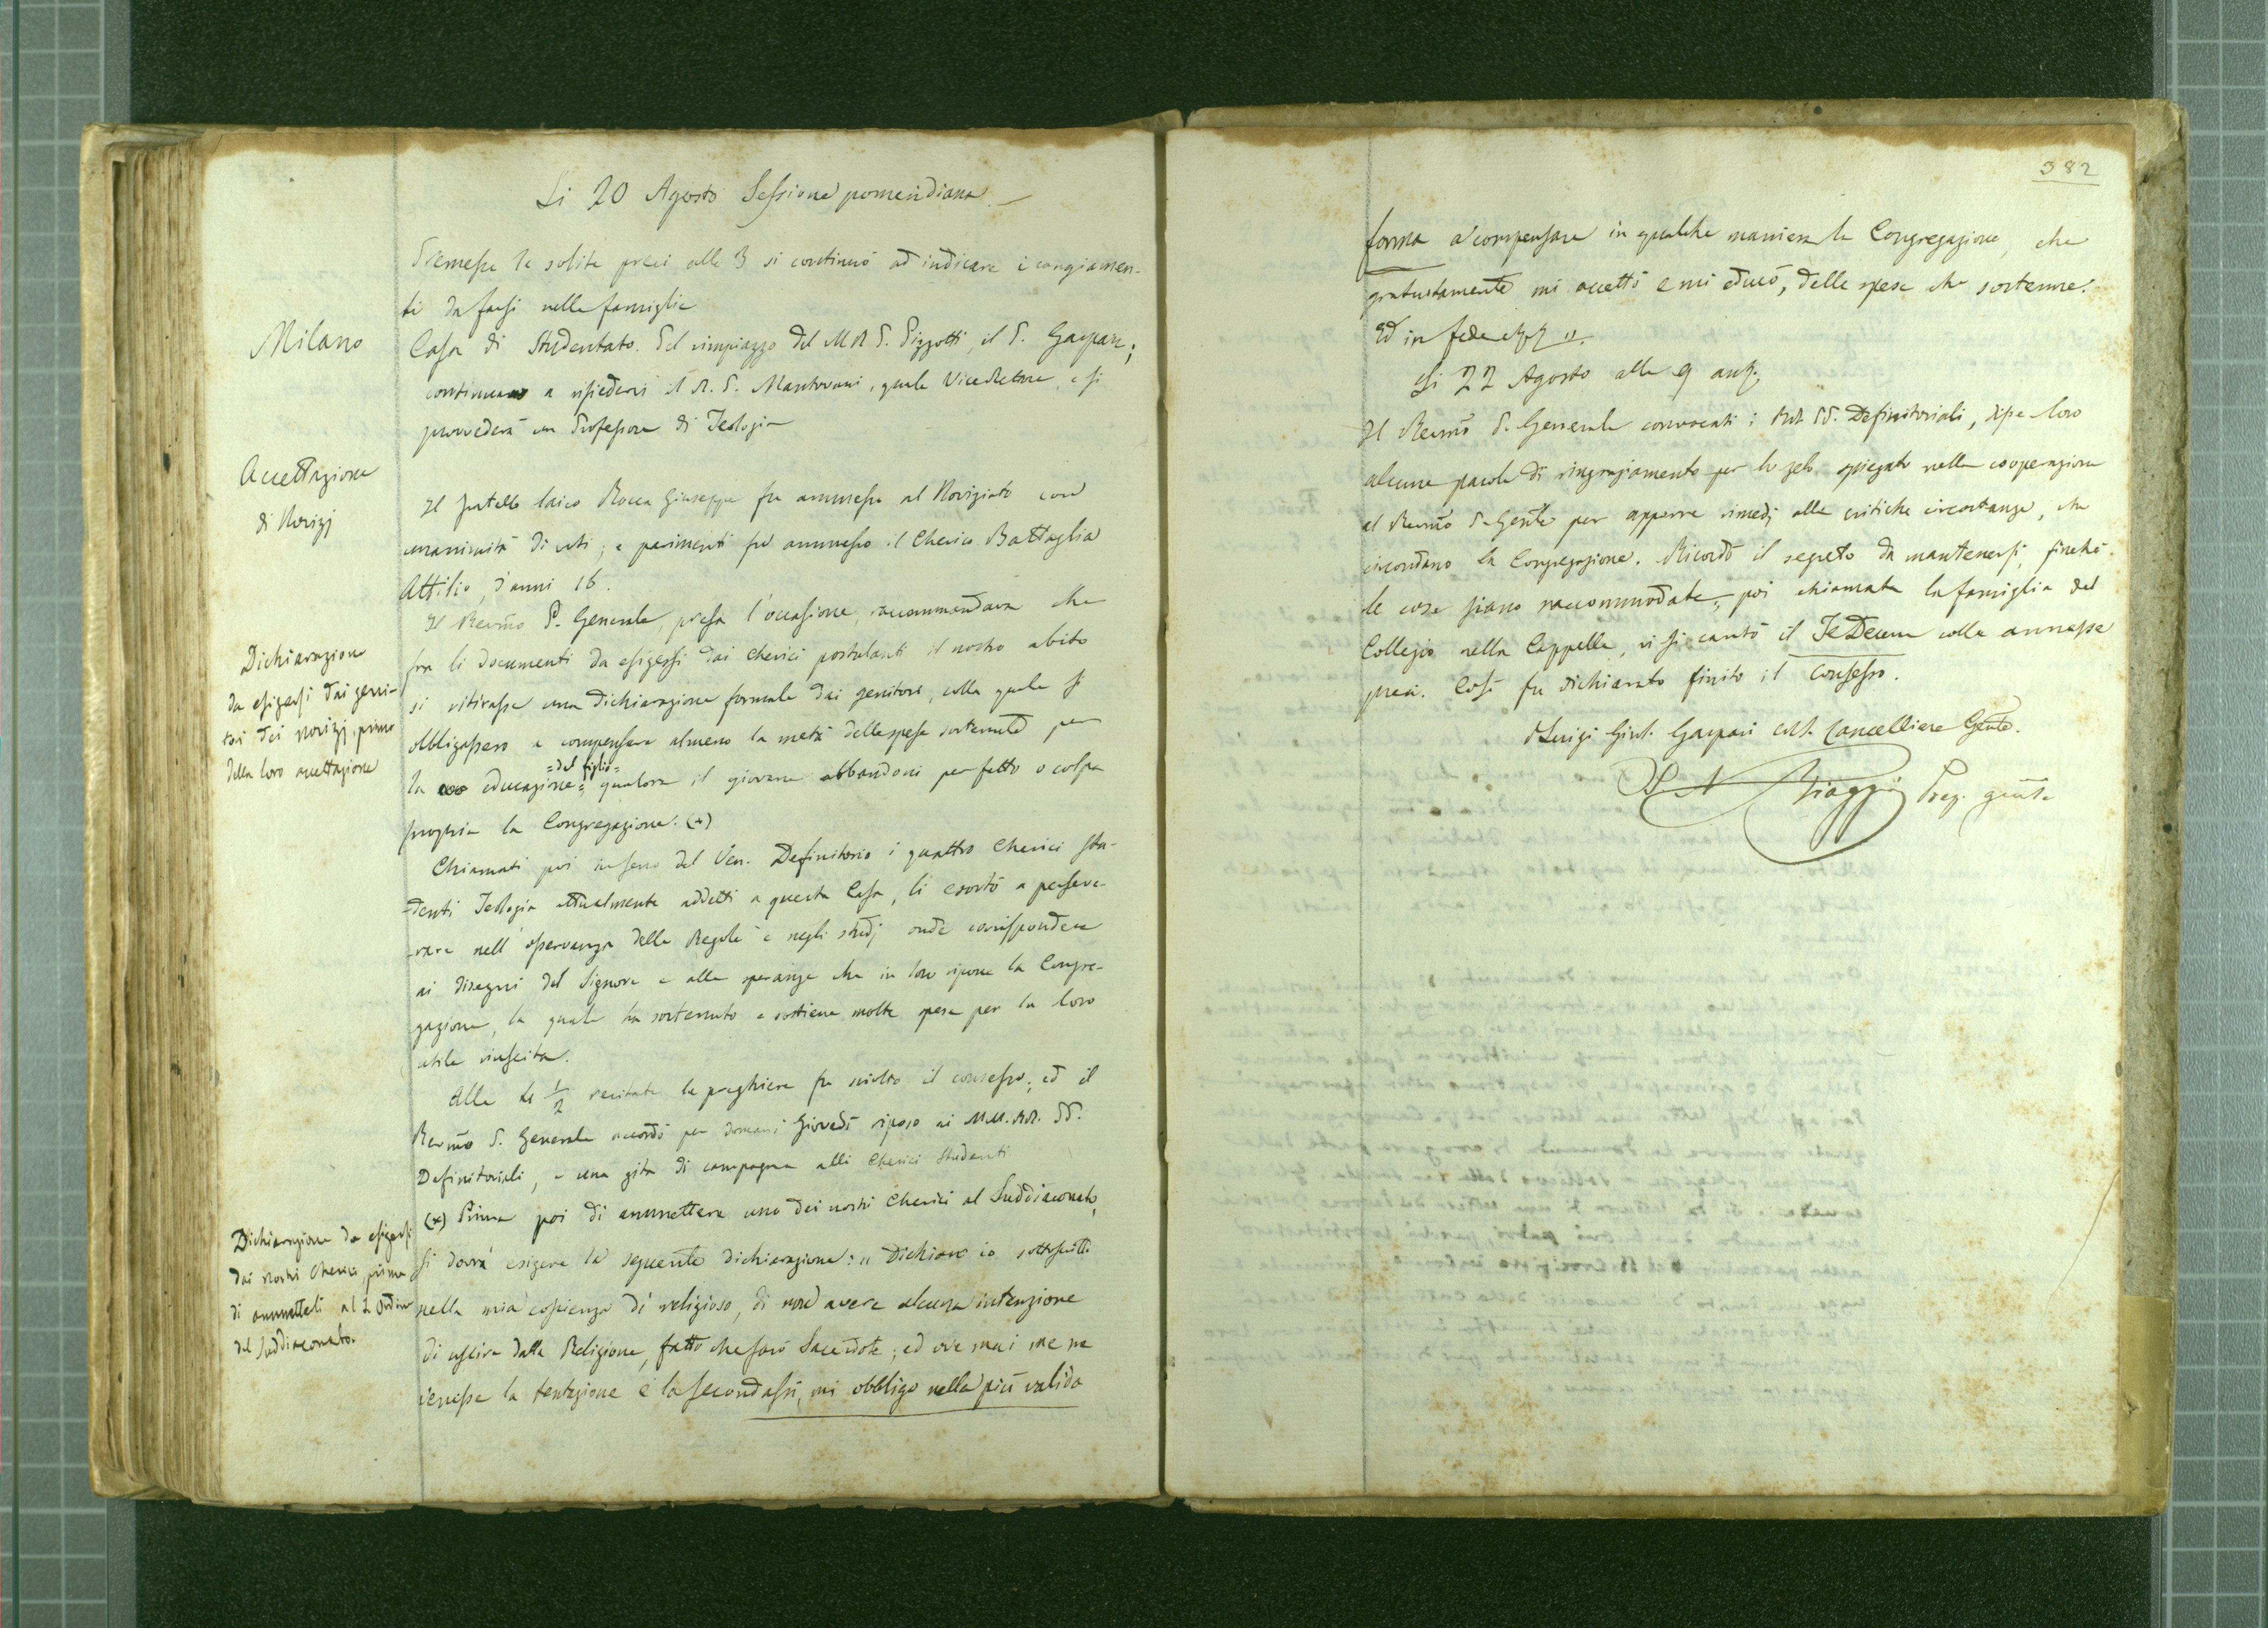 Li 20 Agosto Sessione pomeridiana.
Premesse le solite preci alle 3 si continuò ad indicare i cangiamen-
ti da farsi nelle famiglie
Milano
Casa di Studentato. Pel rimpiazzo del M R P. Pizzotti, il P. Gaspari;
continuerà a risiedervi il R. P. Mantovani, quale ViceRettore, e si
provvederà un Professore di Teologia
Accettazione
di Novizj
Il fratello laico Rocca Giuseppe fu ammesso al Noviziato con
unanimità di voti; e parimenti fu ammesso il Cherico Battaglia
Attilio, d'anni 16.
Dichiarazione
da esigersi dai geni-
tori dei novizj, prima
della loro accettazione
Il Revmo P. Generale, presa l'occasione, raccomandava che
fra li documenti da esigersi dai cherici postulanti il nostro abito
si ritirasse una dichiarazione formale dai genitori, colla quale si
obbligassero a compensare almeno la metà delle spese sostenute per
la educazione =del figlio= qualora il giovane abbandoni per fatto o colpa
propria la Congregazione. (+)
Chiamati poi in seno del Ven. Definitorio i quattro Cherici stu-
denti Teologia attualmente addetti a questa Casa, li esortò a perseve-
rare nell'osservanza delle Regole e negli studj onde corrispondere
ai disegni del Signore e alle speranze che in loro ripone la Congre-
gazione, la quale ha sostenuto e sostiene molte spese per la loro
utile riuscita.
Alle 1/2 recitate le preghiere fu sciolto il consesso; ed il
Revmo P. Generale accordò per domani Giovedì riposo ai MM. RR. PP.
Definitoriali, e una gita di campagna alli Cherici Studenti
Dichiarazione da esigersi
dai nostri Cherici prima
di ammetterli al S. Ordine
del Suddiaconato.
(+) Prima poi di ammettere uno dei nostri Cherici al Suddiaconato,
si dovrà esigere la seguente dichiarazione: " Dichiaro io sottoscritto
nella mia coscienza di religioso, di non avere alcuna intenzione
di uscire dalla Religione, fatto che sarò Sacerdote; ed ove mai me ne
venisse la tentazione e la secondassi, mi obbligo nella più valida
382
forma a compensare in qualche maniera la Congregazione, che
gratuitamente mi accettò e mi educò, delle spese che sostenne.
Ed in fede
Li 22 Agosto alle 9 ant.
Il Revmo P. Generale convocati i RR. PP. Definitoriali, disse loro
alcune parole di ringraziamento per lo zelo spiegato nella cooperazione
al Revmo P. Gente per apporre rimedj alle critiche circostanze, che
circondano la Congregazione. Ricordò il segreto da mantenersi, finchè
le cose siano raccommodate; poi chiamata la famiglia del
Collegio nella Cappella, vi si cantò il TeDeum colle annesse
preci. Così fu dichiarato finito il Consesso.
D Luigi Girol. Gaspari CRS. Cancelliere Gente.
Biaggi Prep. genle